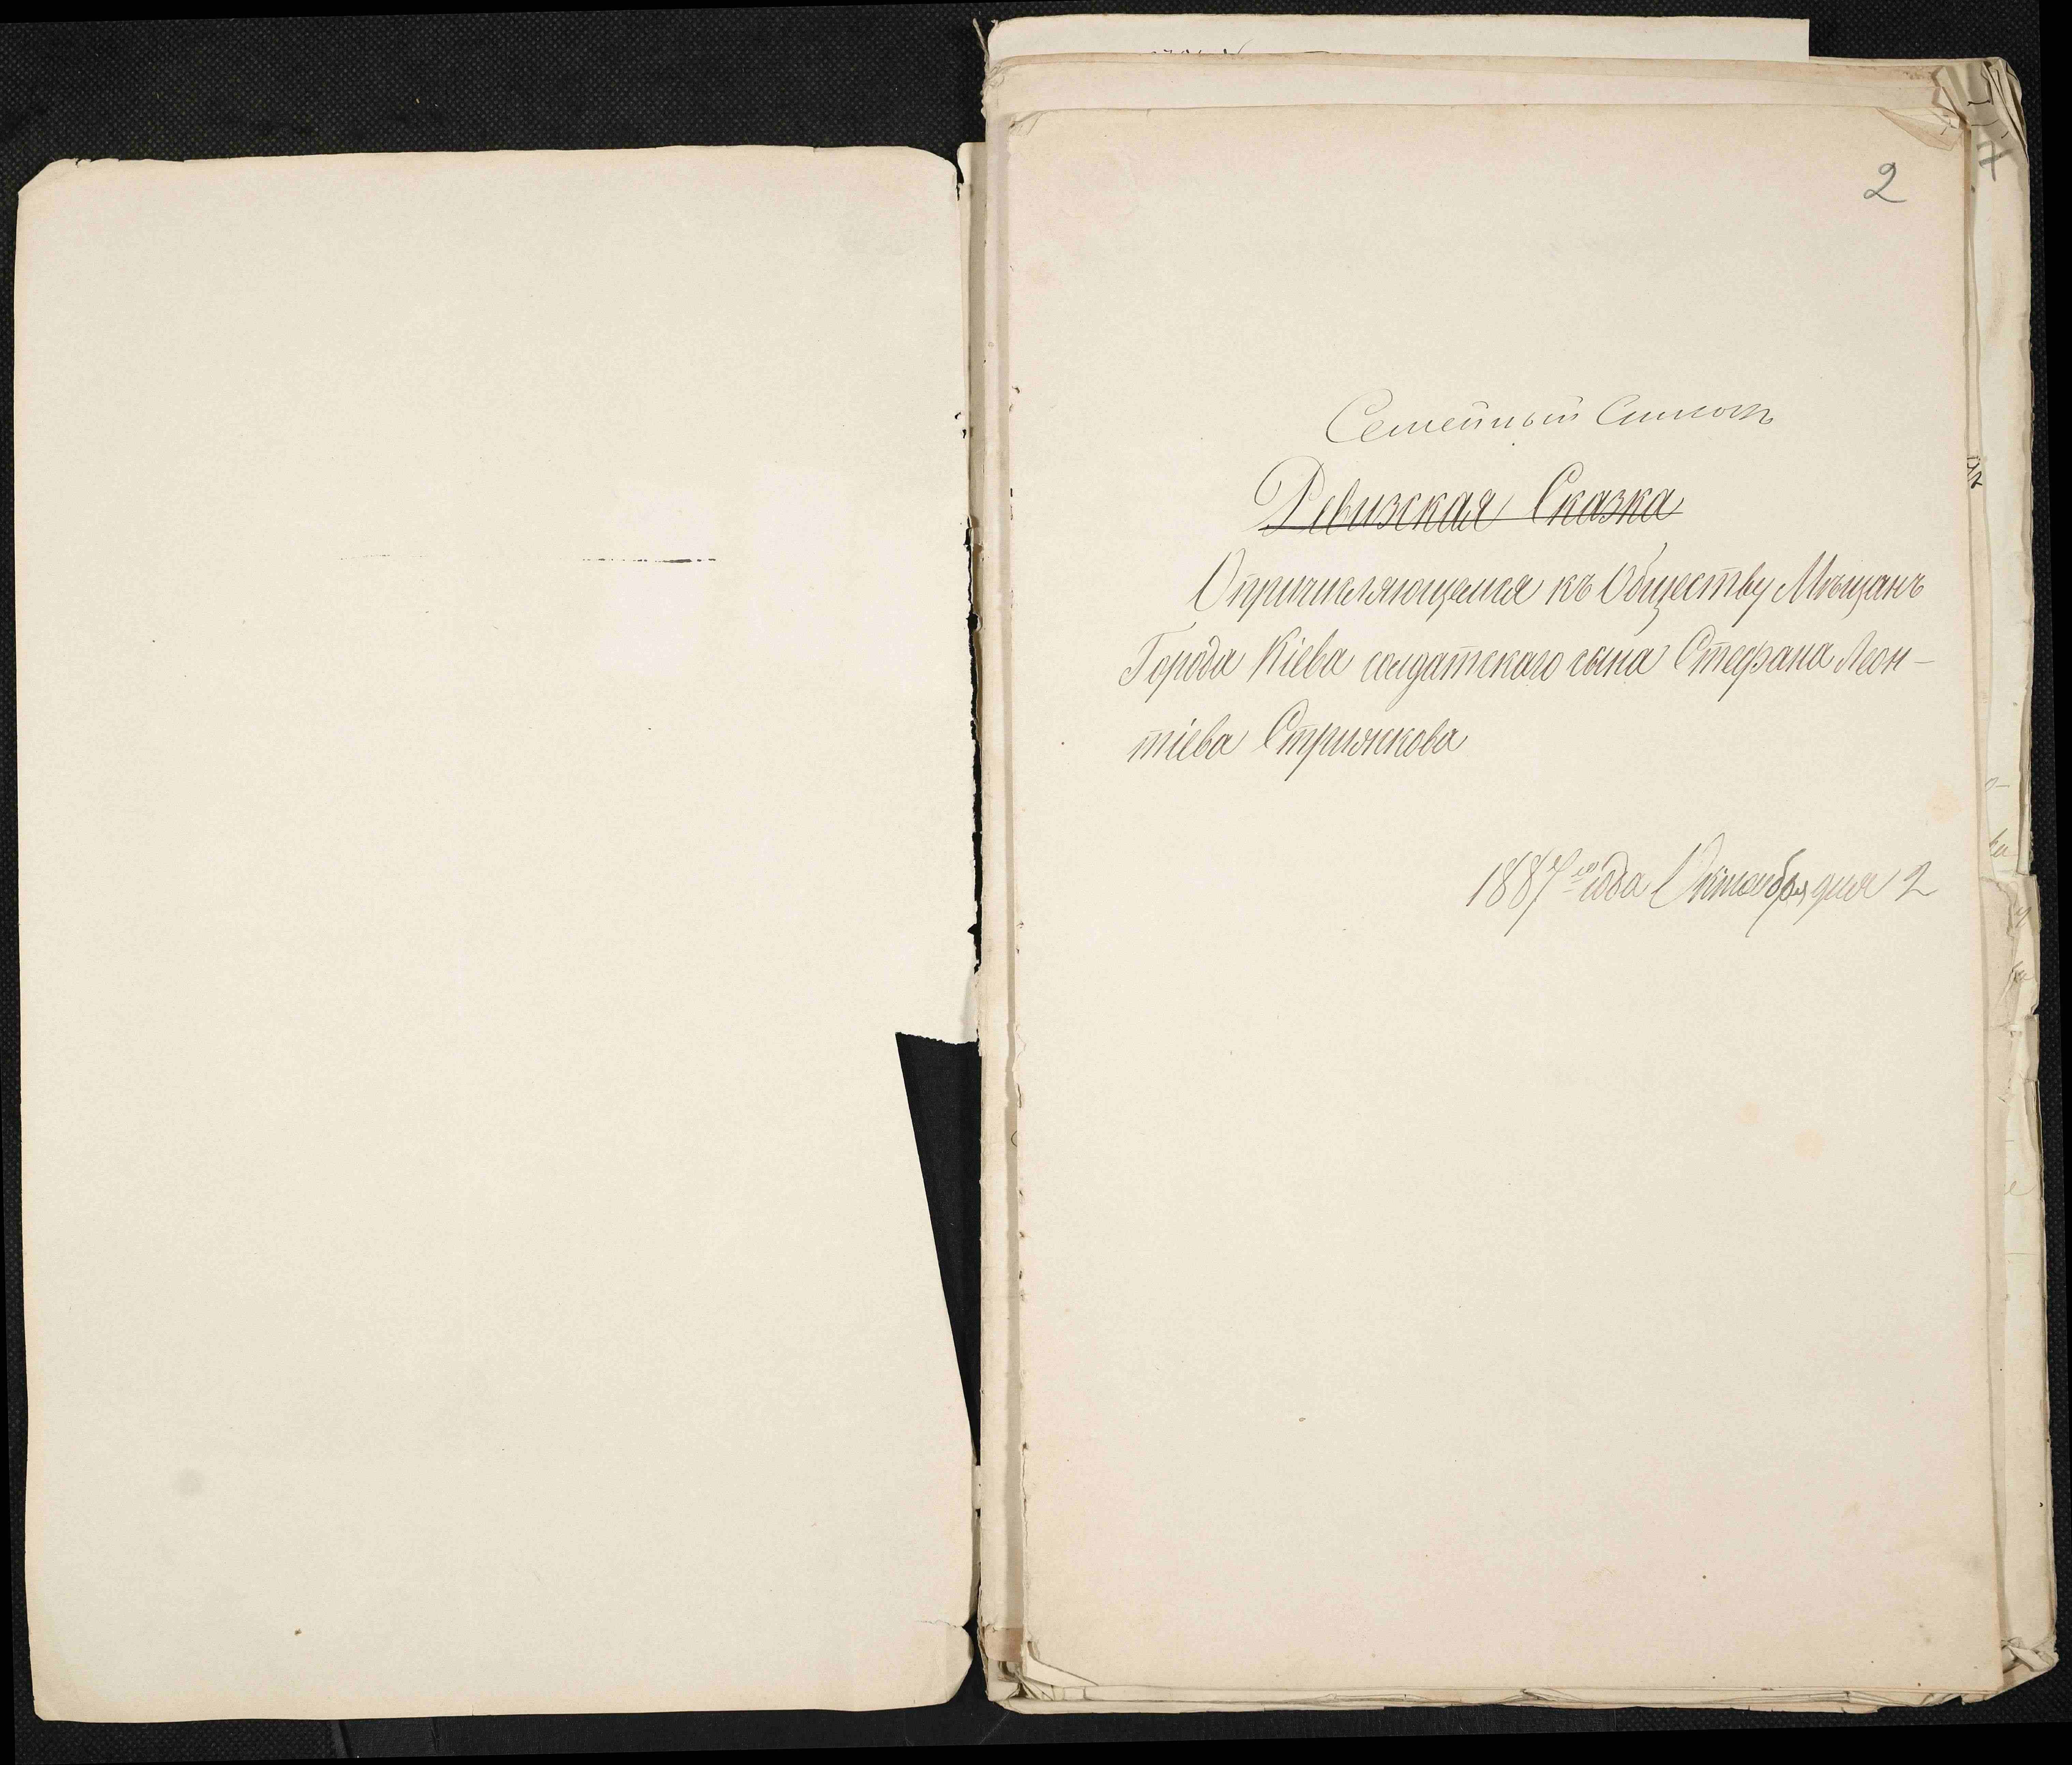 2
Семейный Списокъ
Ревизская Сказка
О причисляющемся къ Обществу Мѣщанъ
Города Кіева солдатскаго сына Стефана Леон-
тіева Стрижкова
1887го года Октября дня 2